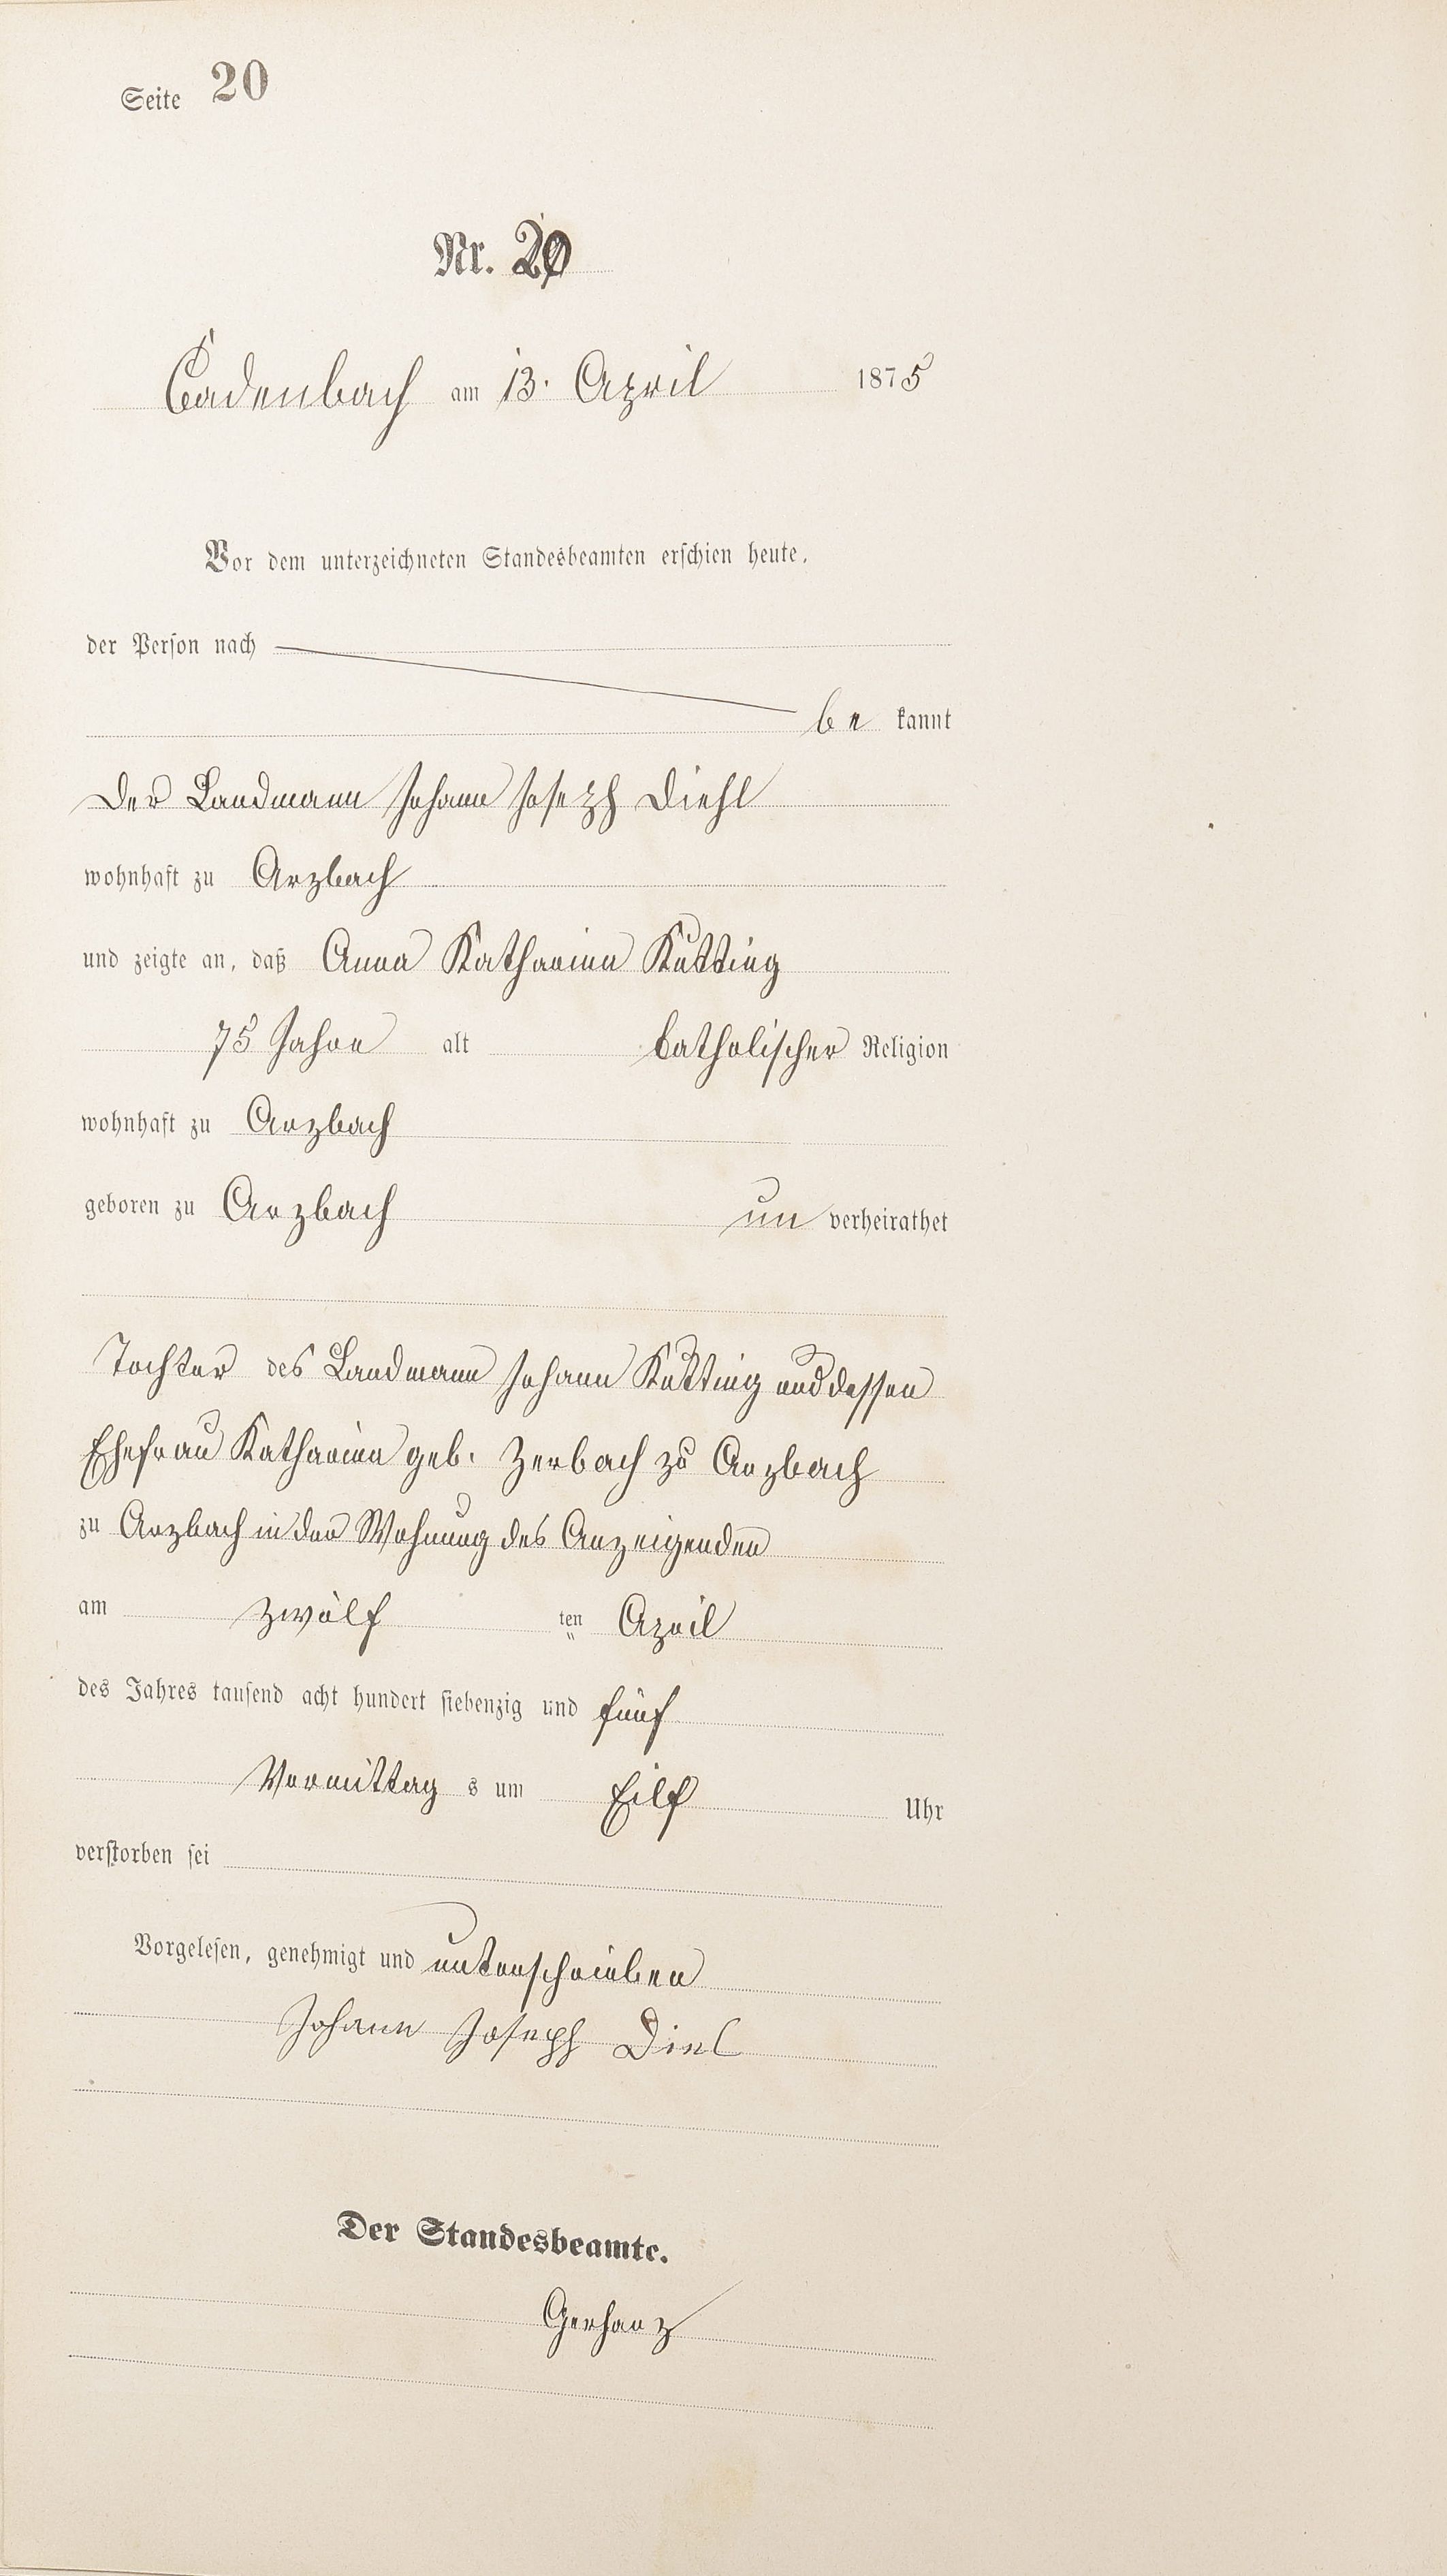 Seite 20
Nr. 20
Cadenbach am 13. April 1875
Vor dem unterzeichneten Standesbeamten erschien heute,
der Person nach
be kannt
Der Landmann Johann Joseph Diehl
wohnhaft zu Arzbach
und zeigte an, daß Anna Katharina Kutting
75 Jahre alt katholischer Religion
wohnhaft zu Arzbach
geboren zu Arzbach un verheirathet
Tochter des Landmann Johann Kutting und dessen
Ehefrau Katharina geb. Zerbach zu Arzbach
zu Arzbach in der Wohnung des Anzeigenden
am zwölf ten April
des Jahres tausend acht hundert siebenzig und fünf
Vormittag s um Eilf Uhr
verstorben sei
Vorgelesen, genehmigt und unterschrieben
Johann Joseph Diel
Der Standesbeamte.
Gerharz